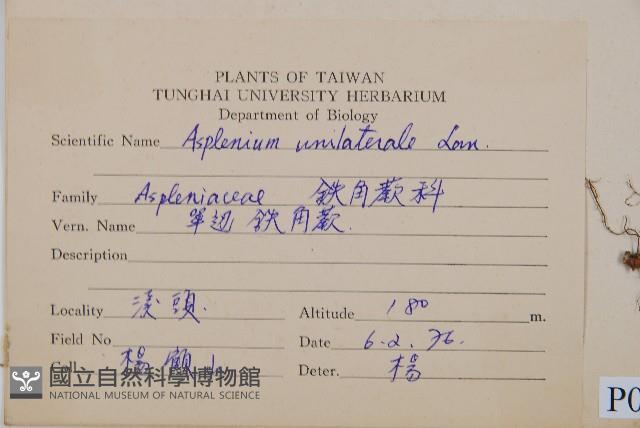 PLANTS OF TAIWAN
TUNGHAI UNIVERSITY HERBARIUM
Department of Biology
Scientific Name Asplenium unilaterale Lam.
Family Aspleniaceae 鉄角蕨科
Vern. Name 單边 鉄角蕨.
Description
Locality 溪頭. Altitude 180 m.
Field No Date 6.2.76.
Coll. 楊 Deter. 楊
國立自然科學博物館
NATIONAL MUSEUM OF NATURAL SCIENCE
P0